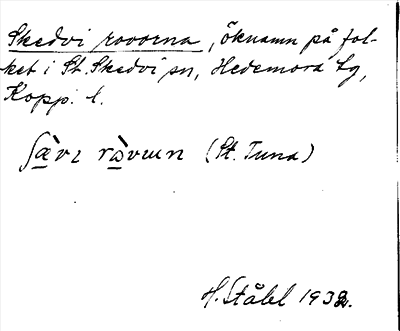 Skedvi rovorna, öknamn på fol-
ket i St. Skedvi sn, Hedemora tg,
Kopp. l.
ʃæ̀vı rɑ̀vɯn (St. Tuna)
H. Ståhl 1932.